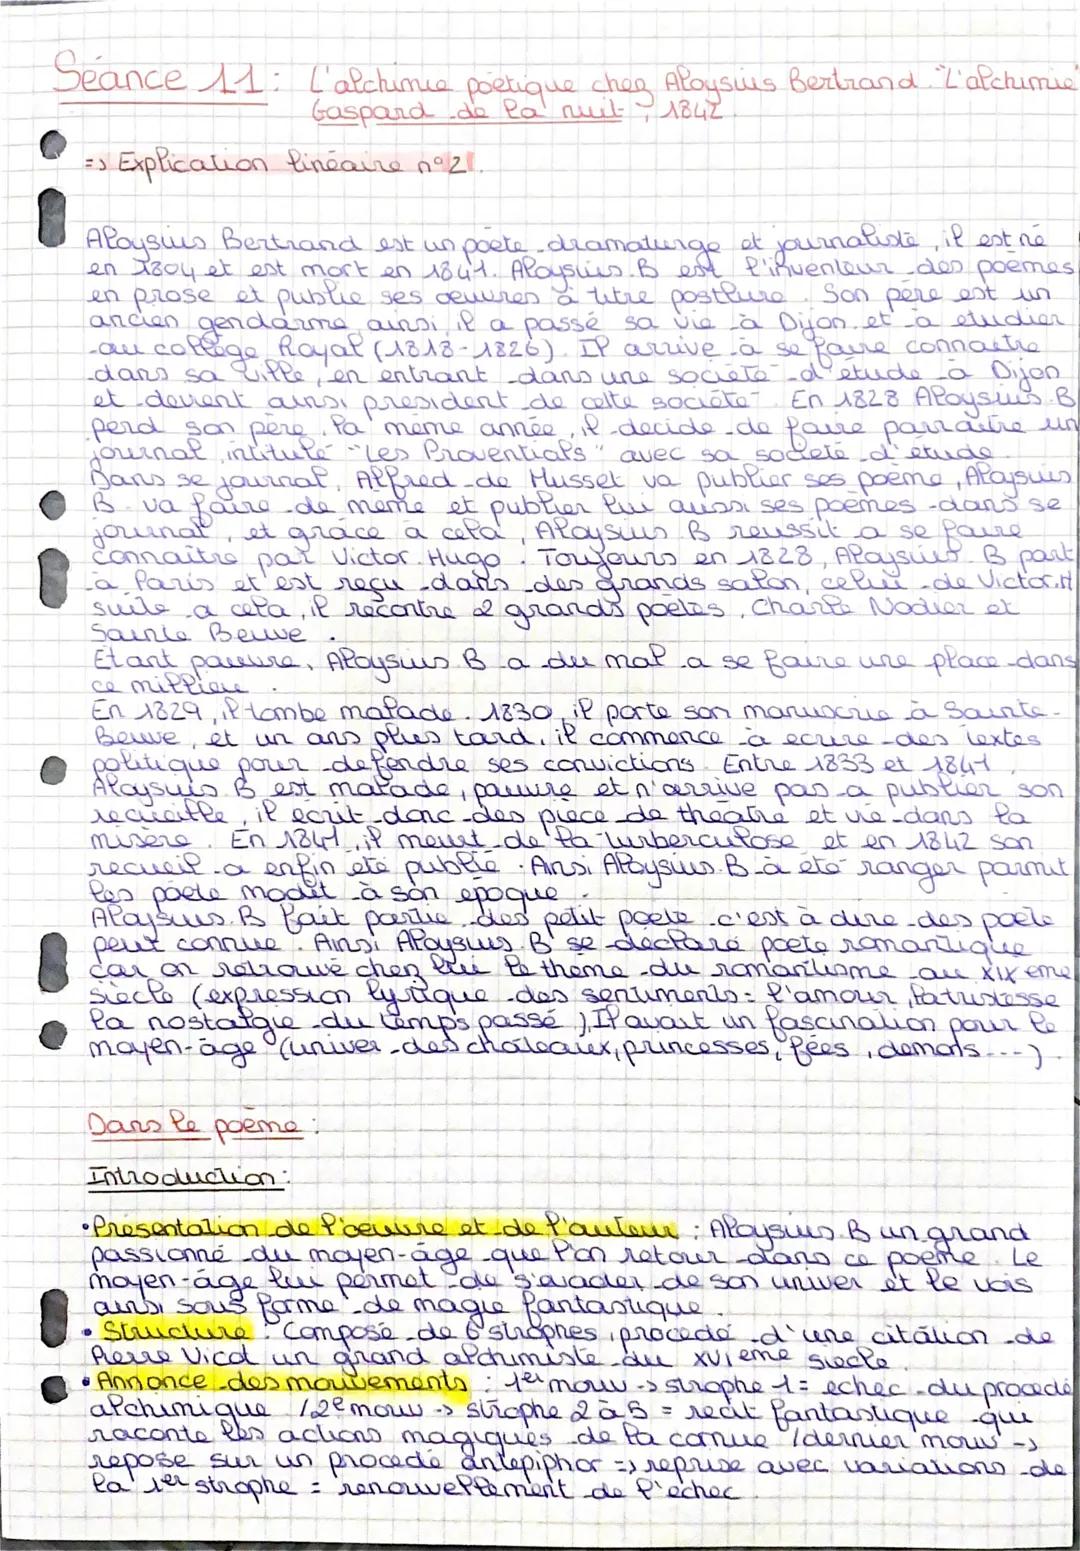 Séance 11: L'alchimie poétique chez Aloysius Bertrand "L'alchimie"
Gaspard de la nuit, 1842.
=> Explication linéaire n°21.
Aloysius Bertrand est un poète dramaturge et journaliste, il est né
en 1804 et est mort en 1841. Aloysius.B est l'inventeur des poèmes
en prose et publie ses oeuvres à titre posthure. Son père est un
ancien gendarme ainsi, il a passé sa vie à Dijon et à etudier
au collège Royal (1818-1826). Il arrive à se faire connaitre
dans sa ville, en entrant dans une société d'étude à Dijon
et devient ainsi président de cette société. En 1828 Aloysius.B
perd son père, la même année, il decide de faire parraître un
journal intitulé "Les Proventials" avec sa société d'étude.
Dans se journal, Alfred de Musset va publier ses poème, Aloysius
B. va faire de même et publier lui aussi ses poèmes dans se
journal, et grâce à cela, Aloysius.B reussit a se faire
connaitre par Victor.Hugo. Toujours en 1828, Aloysius.B part
à Paris et est reçu dans des grands salon, celui de Victor.H
suite a cela, il recontre 2 grands poètes, Charle Nodier et
Sainte Beuve.
Etant pauvre, Aloysius B a du mal a se faire une place dans
ce millieu.
En 1829, il tombe malade. 1830, il porte son manuscrie à Sainte-
Beuve, et un ans plus tard, il commence à ecrire des textes
politique pour defendre ses convictions. Entre 1833 et 1841,
Aloysius B est malade, pauvre et n'arrive pas a publier son
recueille, il écrit donc des pièce de théatre et vie dans la
misère. En 1841, il meurt de la turberculose et en 1842 son
recueil a enfin été publié. Ainsi Aloysius.B à été ranger parmit
les poète modit à son epoque.
Aloysius.B fait partie des petit poète c'est à dire des poète
peut connue. Ainsi Aloysius.B se declare poète romantique
car on retrouve chez lui le thème du romantisme au XIX eme
siècle (expression lyrique des sentiments = l'amour, la tristesse
la nostalgie du temps passé), Il avait un fascination pour le
moyen-âge (univer des chateaux, princesses, fées, demons...).
Dans le poème:
Introduction:
•Présentation de l'oeuvre et de l'auteur: Aloysius.B un grand
passionné du moyen-âge que l'on retour dans ce poème. Le
moyen-âge lui permet de s'evader de son univer et le vois
ainsi sous forme de magie fantastique.
•Structure: Composé de 6 strophes, procedé d'une citation de
Pierre Vicot un grand alchimiste du XVIeme siecle.
•Annonce des mouvements: 1er mouv -> strophe 1 = echec du procedé
alchimique /2e mouv -> strophe 2 à 5 = recit fantastique qui
raconte les actions magiques de la cornue /dernier mouv ->
repose sur un procedé antepiphor => reprise avec variations de
la 1er strophe = renouvellement de l'echec.